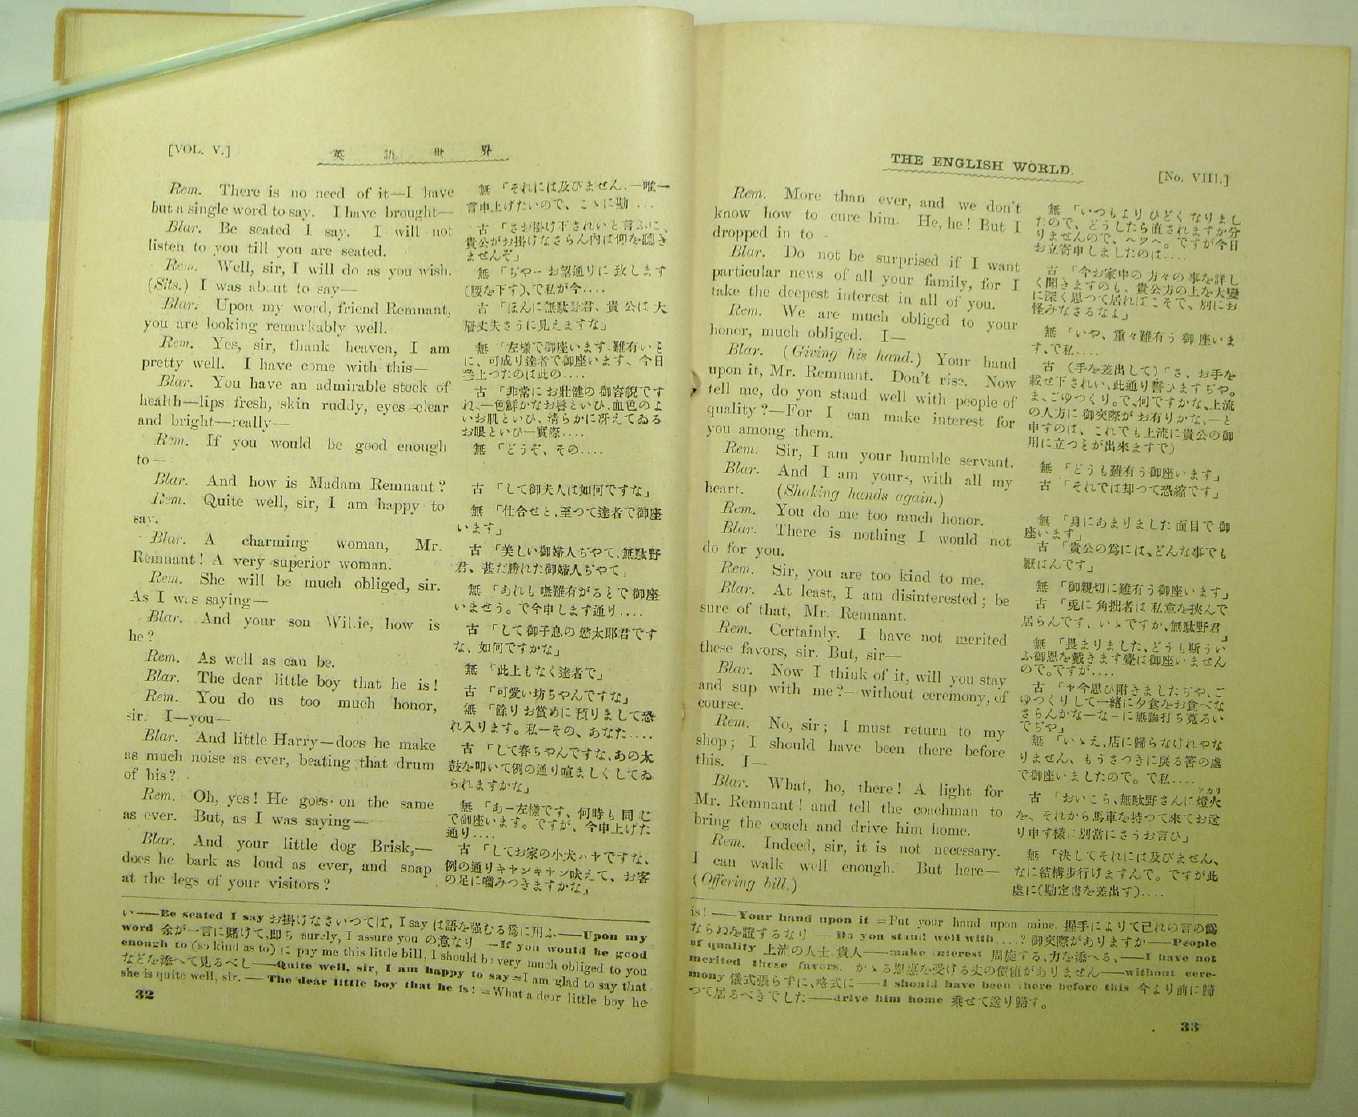 [VOL. V.]
英語世界
Rem. There is no need of it—I have
but a single word to say. I have brought—
Blar. Be seated I say. I will not
listen to you till you are seated.
Rem. Well, sir, I will do as you wish.
(Sits.) I was about to say—
Blar. Upon my word, friend Remnant,
you are looking remarkably well.
Rem. Yes, sir, thank heaven, I am
pretty well. I have come with this—
Blar. You have an admirable stock of
health—lips fresh, skin ruddy, eyes clear
and bright—really—
Rem. If you would be good enough
to—
Blar. And how is Madam Remnant?
Rem. Quite well, sir, I am happy to
say.
Blar. A charming woman, Mr.
Remnant! A very superior woman.
Rem. She will be much obliged, sir.
As I was saying—
Blar. And your son Willie, how is
he?
Rem. As well as can be.
Blar. The dear little boy that he is!
Rem. You do us too much honor,
sir. I—you—
Blar. And little Harry—does he make
as much noise as ever, beating that drum
of his?
Rem. Oh, yes! He goes on the same
as ever. But, as I was saying—
Blar. And your little dog Brisk,—
does he bark as loud as ever, and snap
at the legs of your visitors?
無「それには及びません、一唯一
言申上げたいので、こゝに勘...
古「さお掛け下されいと言ふに、
貴公がお掛けなさらん内は何を聽き
ませんぞ」
無「ぢやーお望通りに致します
(腰を下す)、で私が今....
古「ほんに無駄野君、貴公は大
層丈夫さうに見えますな」
無「左樣で御座います、難有いこと
に、可成り達者で御座います、今日
參上つたのは此の....
古「非常にお壯健の御容貌です
れ、一色鮮かなお唇といひ、血色のよ
いお肌といひ、清らかに冴えてゐる
お眼といひ—實際....
無「どうぞ、その....
古「して御夫人は如何ですな」
無「仕合せと、至つて達者で御座
います」
古「美しい御婦人ぢやて、無駄野
君、甚だ勝れた御婦人ぢやて」
無「あれも嘸難有がることで御座
いませう。で今申します通り....
古「して御子息の悠太郎君です
な、如何ですかな」
無「此上もなく達者で」
古「可愛い坊ちやんですな」
無「餘りお賞めに預りまして恐
れ入ります。私一その、あなた....
古「して春ちやんですな、あの太
鼓を叩いて例の通り喧ましくしてゐ
られますかな」
無「あー左樣です、何時も同じ
で御座います。ですが、今申上げた
通り....
古「してお家の小犬ハヤですな、
例の通りキヤンキヤン吠えて、お客
の足に嚙みつきますかな」
い——Be seated I say お掛けなさいつてば, I say は語を强むる爲に用ふ——Upon my
word 余が一言に賭けて、即ち surely, I assure you の意なり —If you would be good
enough to (so kind as to) to pay me this little bill, I should be very much obliged to you
などを添へて見るべし——Quite well, sir, I am happy to say=I am glad to say that
she is quite well, sir. — The dear little boy that he is! =What a dear little boy he
32
THE ENGLISH WORLD.
[No. VIII.]
Rem. More than ever, and we don't
know how to cure him. He, he! But I
dropped in to -
Blar. Do not be surprised if I want
particular news of all your family, for I
take the deepest interest in all of you.
Rem. We are much obliged to your
honor, much obliged. I—
Blar. (Giving his hand.) Your hand
upon it, Mr. Remnant. Don't rise. Now
tell me, do you stand well with people of
quality?—For I can make interest for
you among them.
Rem. Sir, I am your humble servant.
Blar. And I am yours, with all my
heart. (Shaking hands again.)
Rem. You do me too much honor.
Blar. There is nothing I would not
do for you.
Rem. Sir, you are too kind to me.
Blar. At least, I am disinterested; be
sure of that, Mr. Remnant.
Rem. Certainly. I have not merited
these favors, sir. But, sir—
Blar. Now I think of it, will you stay
and sup with me?—without ceremony, of
course.
Rem. No, sir; I must return to my
shop; I should have been there before
this. I—
Blar. What, ho, there! A light for
Mr. Remnant! and tell the coachman to
bring the coach and drive him home.
Rem. Indeed, sir, it is not necessary.
I can walk well enough. But here—
(Offering bill.)
無「いつもよりひどくなりまし
たので、どうしたら直されますか分
りませんので、ヘツヘ。ですが今日
お立寄申しましたのは....
古「今お家中の方々の事を詳し
く聞きますのも、貴公方の上を大變
に深く思つて居ればこそで、別にお
怪みなさるなよ」
無「いや、重々難有う御座いま
す、で私....
古(手を差出して)「さ、お手を
載せ下されい、此通り誓ひますぢや。
ま、ごゆつくり。で、何ですかな、上流
の人方に御交際がお有りかな、—と
申すのは、これでも上流に貴公の御
用に立つことが出來ますで)
無「どうも難有う御座います」
古「それでは却つて恐縮です」
無「身にあまりました面目で御
座います」
古「貴公の爲には、どんな事でも
厭はんです」
無「御親切に難有う御座います」
古「兎に角拙者は私意を挾んで
居らんです、いゝですか、無駄野君」
無「畏まりました、どうも斯うい
ふ御恩を戴きます覺は御座いません
ので。ですが....
古「ヤ今思ひ附きましたぢや、ご
ゆつくりして一緖に夕食をお食べな
さらんかなーなーに無論打ち寬ろい
でぢや」
無「いゝえ、店に歸らなければな
りません、もうさつきに戾る筈の處
で御座いましたので。で私....
古「おいこら、無駄野さんに燈火
アカリ
を、それから馬車を持つて來てお送
り申す樣に別當にさうお言ひ」
無「決してそれには及びません、
なに結構步行けますんで。ですが此
處に(勘定書を差出す)....
is! —— Your hand upon it =Put your hand upon mine. 握手によりて己れの言の僞
ならぬを證するなり ——Do you stand well with....? 御交際がありますか——People
of quality 上流の人士、貴人——make interest 周旋する、力を添へる、——I have not
merited these favors. かゝる恩惠を受ける丈の價値がありません——without cere-
mony 儀式張らずに、略式に——I should have been there before this 今より前に歸
つて居るべきでした——drive him home 乘せて送り歸す。
33